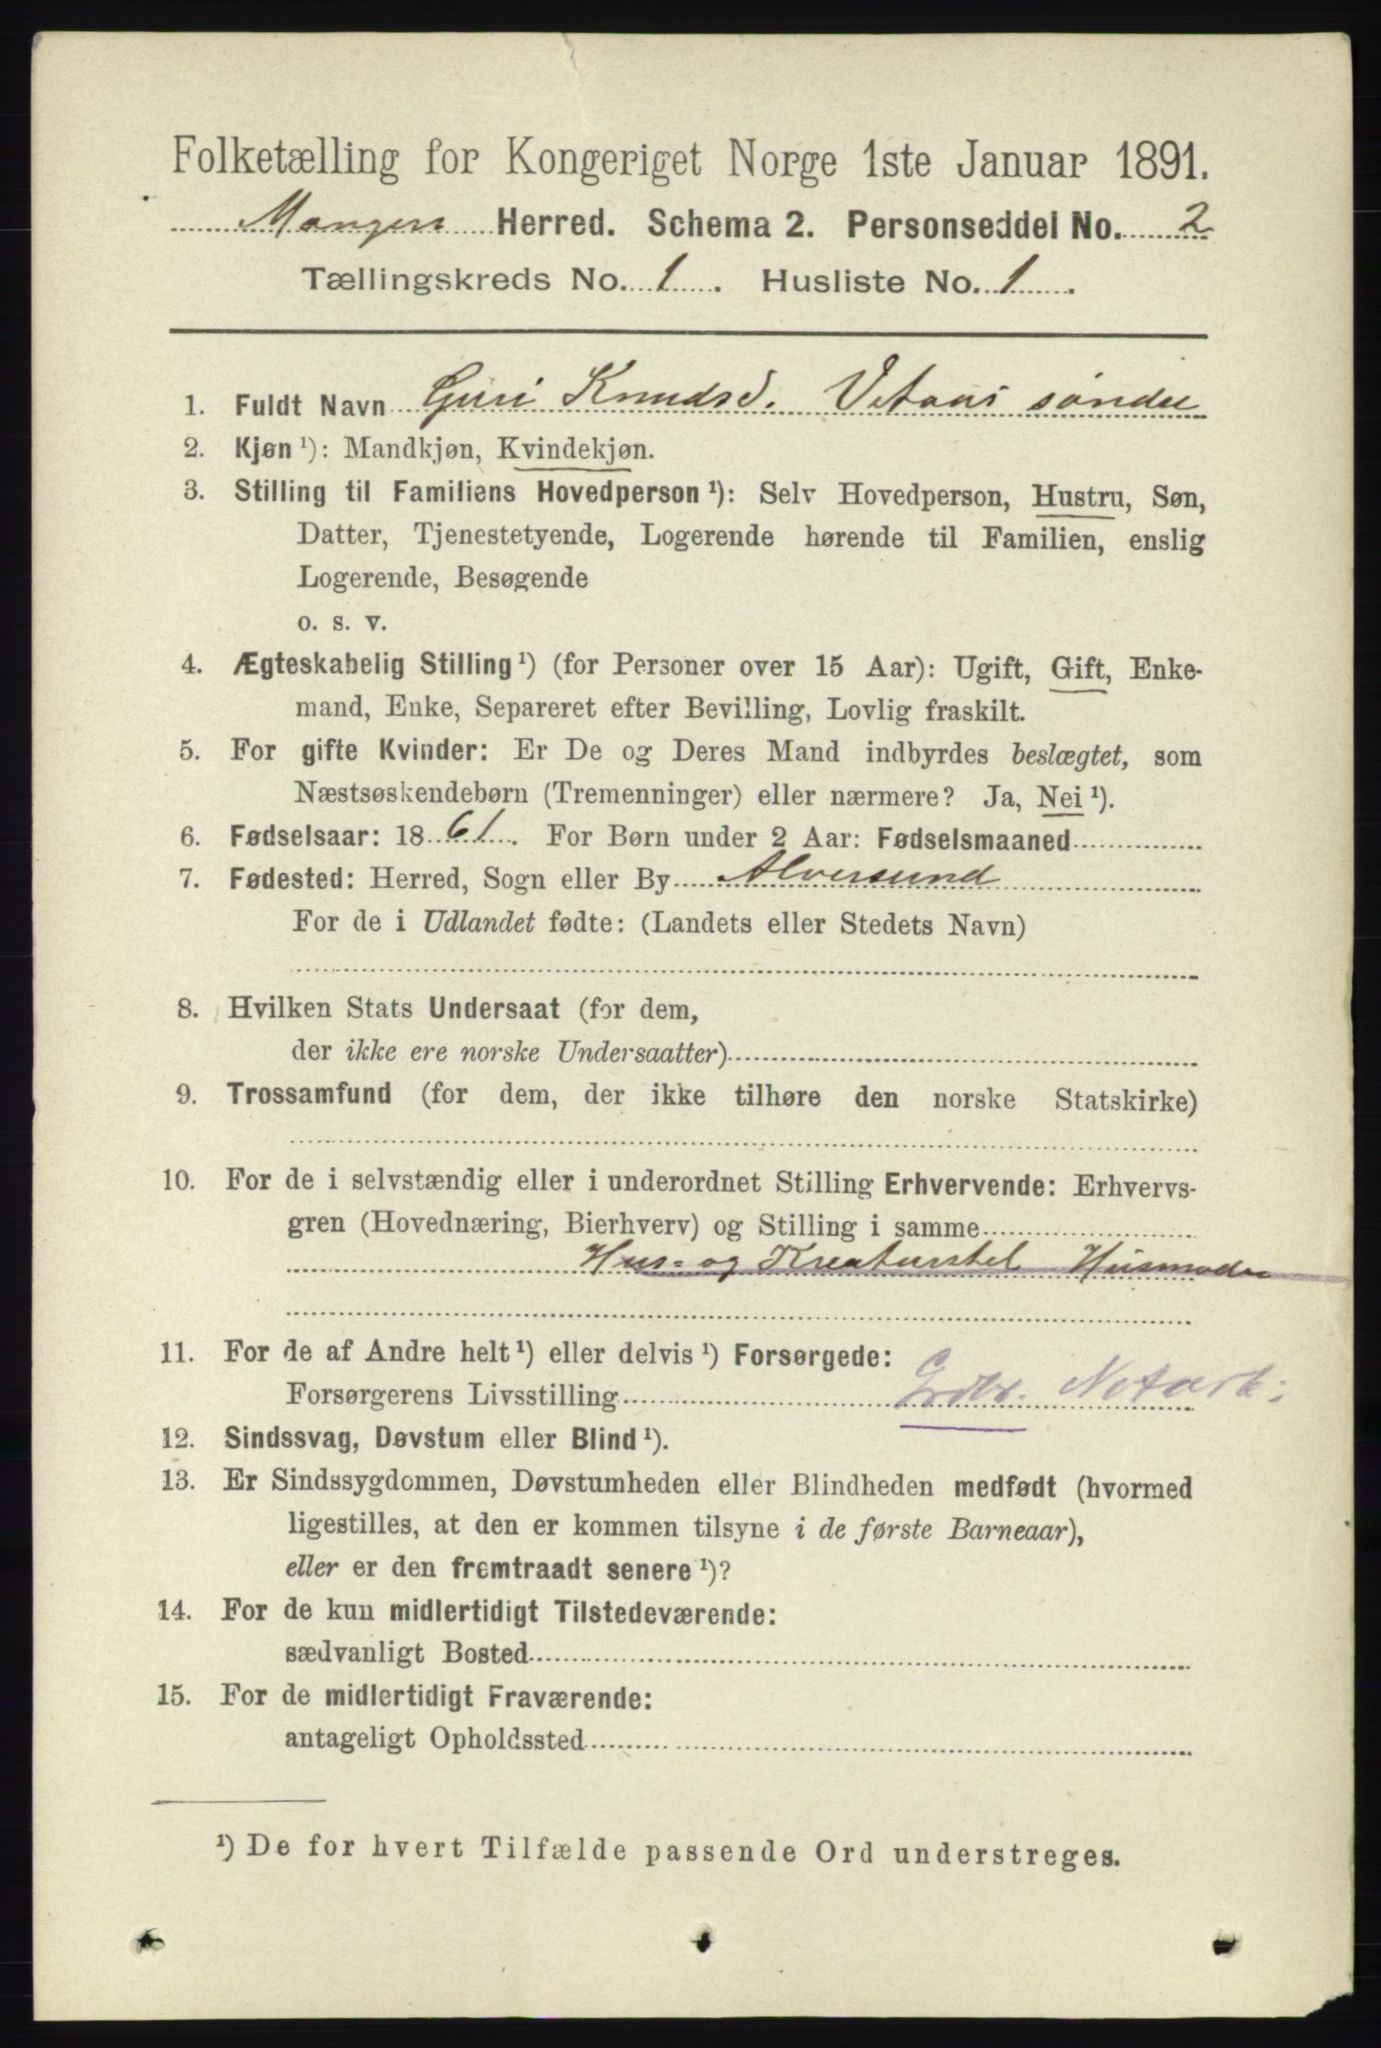 Folketælling for Kongeriget Norge 1ste Januar 1891.
Manger Herred. Schema 2. Personseddel No. 2
Tællingskreds No. 1. Husliste No. 1.
1. Fuldt Navn Guri Knudsd. Vetaas søndre
2. Kjøn ¹): Mandkjøn, Kvindekjøn.
3. Stilling til Familiens Hovedperson ¹): Selv Hovedperson, Hustru, Søn,
Datter, Tjenestetyende, Logerende hørende til Familien, enslig
Logerende, Besøgende
o. s. v.
4. Ægteskabelig Stilling ¹) (for Personer over 15 Aar): Ugift, Gift, Enke-
mand, Enke, Separeret efter Bevilling, Lovlig fraskilt.
5. For gifte Kvinder: Er De og Deres Mand indbyrdes beslægtet, som
Næstsøskendebørn (Tremenninger) eller nærmere? Ja, Nei ¹).
6. Fødselsaar: 1861. For Børn under 2 Aar: Fødselsmaaned
7. Fødested: Herred, Sogn eller By Alversund
For de i Udlandet fødte: (Landets eller Stedets Navn)
8. Hvilken Stats Undersaat (for dem,
der ikke ere norske Undersaatter)
9. Trossamfund (for dem, der ikke tilhøre den norske Statskirke)
10. For de i selvstændig eller i underordnet Stilling Erhvervende: Erhvervs-
gren (Hovednæring, Bierhverv) og Stilling i samme
Hus- og Kreaturstel Husmoder
11. For de af Andre helt ¹) eller delvis ¹) Forsørgede:
Forsørgerens Livsstilling Grdbr. Notarb:
12. Sindssvag, Døvstum eller Blind ¹).
13. Er Sindssygdommen, Døvstumheden eller Blindheden medfødt (hvormed
ligestilles, at den er kommen tilsyne i de første Barneaar),
eller er den fremtraadt senere ¹)?
14. For de kun midlertidigt Tilstedeværende:
sædvanligt Bosted
15. For de midlertidigt Fraværende:
antageligt Opholdssted
¹) De for hvert Tilfælde passende Ord understreges.